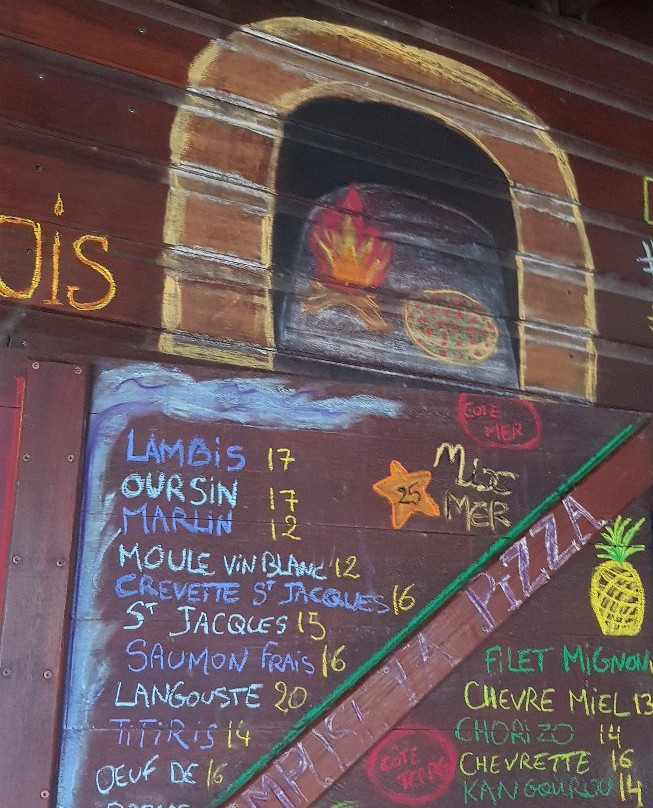 OIS
CÔTE
MER
LAMBIS 17
OURSIN 17
MARLIN 12
MOULE VIN BLANC 12
CREVETTE ST JACQUES 16
ST JACQUES 15
SAUMON FRAIS 16
LANGOUSTE 20
TITIRIS 14
OEUF DE 16
25
MIX
MER
LA PIZZA
FILET MIGNON
CHEVRE MIEL 13
CHORIZO 14
CHEVRETTE 16
KANGOUROU 14
CÔTE
TERRE